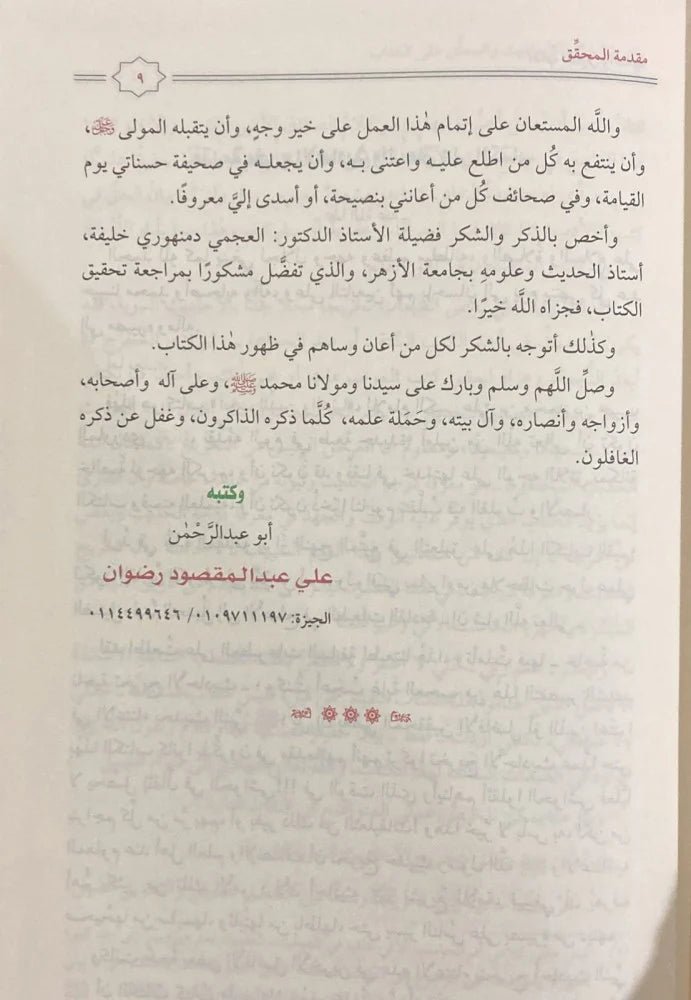 مقدمة المحقِّق
٩
واللَّه المستعان على إتمام هٰذا العمل على خير وجهٍ، وأن يتقبله المولى ﷻ،
وأن ينتفع به كُل من اطلع عليه واعتنى به، وأن يجعله في صحيفة حسناتي يوم
القيامة، وفي صحائف كُل من أعانني بنصيحة، أو أسدى إليَّ معروفًا.
وأخص بالذكر والشكر فضيلة الأستاذ الدكتور: العجمي دمنهوري خليفة،
أستاذ الحديث وعلومهِ بجامعة الأزهر، والذي تفضَّل مشكورًا بمراجعة تحقيق
الكتاب، فجزاه اللَّه خيرًا.
وكذٰلك أتوجه بالشكر لكل من أعان وساهم في ظهور هٰذا الكتاب.
وصلِّ اللَّهم وسلم وبارك على سيدنا ومولانا محمد ﷺ، وعلى آله وأصحابه،
وأزواجه وأنصاره، وآل بيته، وحَمَلة علمه، كُلَّما ذكره الذاكرون، وغفل عن ذكره
الغافلون.
وكتبه
أبو عبدالرَّحْمٰن
علي عبدالمقصود رضوان
الجيزة: ٠١٠٩٧١١١٩٧/ ٠١١٤٤٩٩٦٤٦